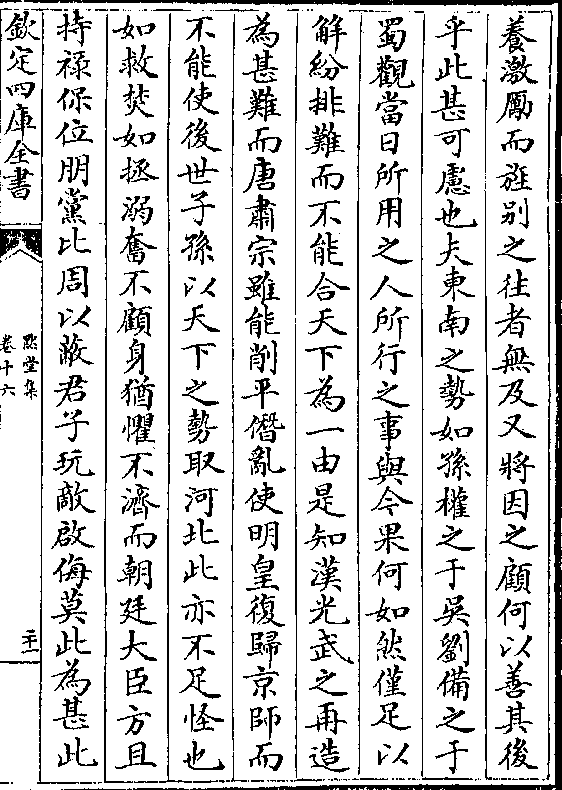 養激勵而旌别之徃者無及又將因之顧何以善其後
乎此甚可慮也夫東南之勢如孫權之于吳劉備之于
蜀觀當日所用之人所行之事與今果何如然僅足以
解紛排難而不能合天下為一由是知漢光武之再造
為甚難而唐肅宗雖能削平僭亂使明皇復歸京師而
不能使後世子孫以天下之勢取河北此亦不足怪也
如救焚如拯溺奮不顧身猶懼不濟而朝廷大臣方且
持祿保位朋黨比周以蔽君子玩敵啟侮莫此為甚此
欽定四庫全書
默堂集
卷十六
二十一